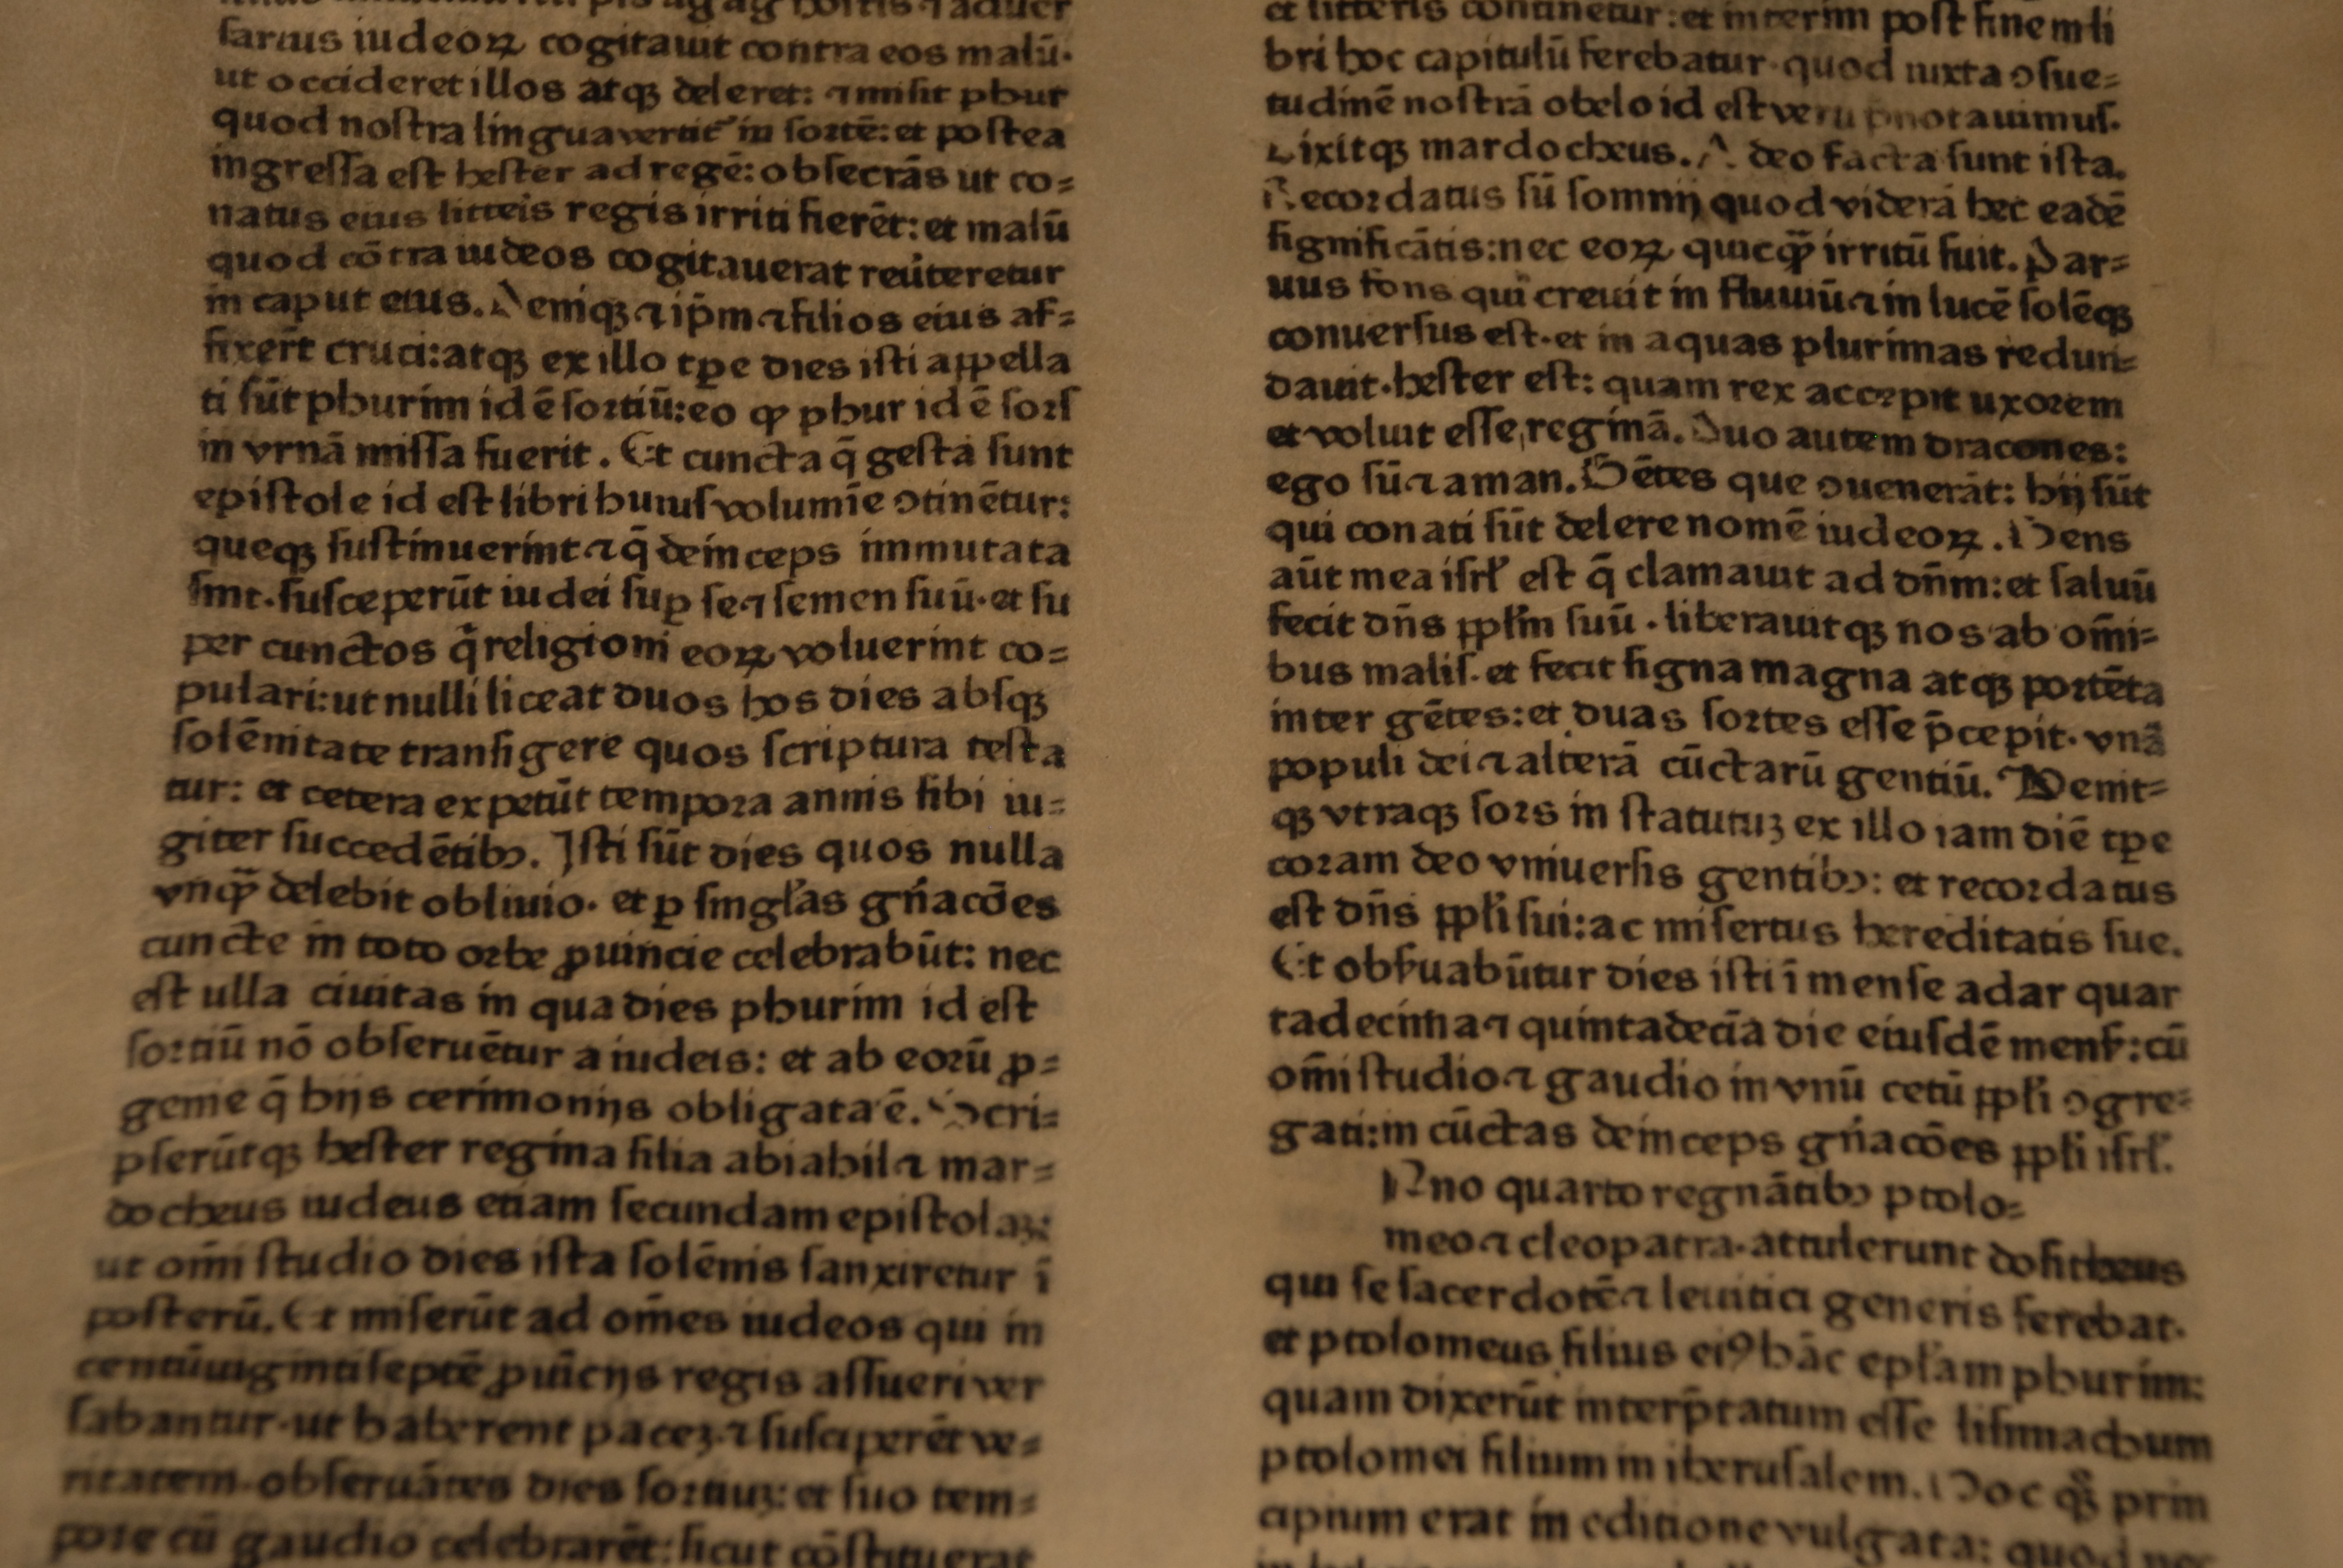 hostis ⁊ aduer
sarius iudeoꝝ cogitauit contra eos malū·
ut occideret illos atqꝫ deleret: ⁊ misit phur
quod nostra lingua vertit᷑ in sortē: et postea
ingressa est hester ad regē: obsecrās ut co⸗
natus eius litteis regis irriti fierēt: et malū
quod cōtra iudeos cogitauerat reūteretur
in caput eius. Deniqꝫ ⁊ ip̄m ⁊ filios eius af⸗
fixer̄t cruci: atqꝫ ex illo tꝑe dies isti appella
ti sūt phurim id ē sortiū: eo ꝙ phur id ē sors
in vrnā missa fuerit. Et cuncta q̄ gesta sunt
epistole id est libri huius volumīe ↄtinētur:
queqꝫ sustinuerint ⁊ q̄ deinceps immutata
sint· susceperūt iudei suꝑ se ⁊ semen suū· et su
per cunctos q̄ religioni eoꝝ voluerint co⸗
pulari: ut nulli liceat duos hos dies absqꝫ
solēnitate transigere quos scriptura testa
tur: et cetera expetūt tempora annis sibi iu⸗
giter succedētibꝰ. Isti sūt dies quos nulla
vnꝙ̄ delebit obliuio· et ꝑ singl̓as gn̓acōes
cuncte in toto orbe ꝓuincie celebrabūt: nec
est ulla ciuitas in qua dies phurim id est
sortiū nō obseruētur a iudeis: et ab eorū ꝓ⸗
genie q̄ hijs cerimonijs obligata ē. Scri⸗
pserūtqꝫ hester regina filia abiahil ⁊ mar⸗
docheus iudeus etiam secundam epistolaꝫ:
ut om̄i studio dies ista solēnis sanxiretur ī
posterū. Et miserūt ad om̄es iudeos qui in
centūuigintiseptē ꝓuīcijs regis assueri ver
sabantur· ut haberent paceꝫ· ⁊ susciperēt ve⸗
ritatem· obseruātes dies sortiuꝫ: et suo tem⸗
pore cū gaudio celebrarēt: sicut cōstituerat
et litteris continetur: et interim post finem li
bri hoc capitulū ferebatur· quod iuxta ↄsue⸗
tudinē nostrā obelo id est veru p̄notauimus.
Dixitqꝫ mardocheus. A deo facta sunt ista.
Recordatus sū somnij quod viderā hec eadē
significātis: nec eoꝝ quicꝙ̄ irritū fuit. Par⸗
uus fons qui creuit in fluuiū ⁊ in lucē solēqꝫ
conuersus est· et in aquas plurimas redun⸗
dauit· hester est: quam rex accepit uxorem
et voluit esse reginā. Duo autem dracones:
ego sū ⁊ aman. Gētes que ↄuenerāt: hij sūt
qui conati sūt delere nomē iudeoꝝ. Gens
aūt mea isrl̓ est q̄ clamauit ad dn̄m: et saluū
fecit dn̄s ppl̓m suū· liberauitqꝫ nos ab om̄i⸗
bus malis· et fecit signa magna atqꝫ portēta
inter gētes: et duas sortes esse p̄cepit· vnā
populi dei ⁊ alterā cūctarū gentiū. Venit⸗
qꝫ vtraqꝫ sors in statutuꝫ ex illo iam diē tꝑe
coram deo vniuersis gentibꝰ: et recordatus
est dn̄s ppl̓i sui: ac misertus hereditatis sue.
Et obs̓uabūtur dies isti ī mense adar quar
tadecima ⁊ quintadecīa die eiusdē mens̓: cū
om̄i studio ⁊ gaudio in vnū cetū ppl̓i ↄgre⸗
gati: in cūctas deinceps gn̓acōes ppl̓i isrl̓.
Anno quarto regnātibꝰ ptolo⸗
meo ⁊ cleopatra· attulerunt dositheus
qui se sacerdotē ⁊ leuitici generis ferebat·
et ptolomeus filius eiꝰ hāc epl̓am phurim:
quam dixerūt interp̄tatum esse lisimachum
ptolomei filium in iherusalem. Hoc qꝫ prin
cipium erat in editione vulgata: quod